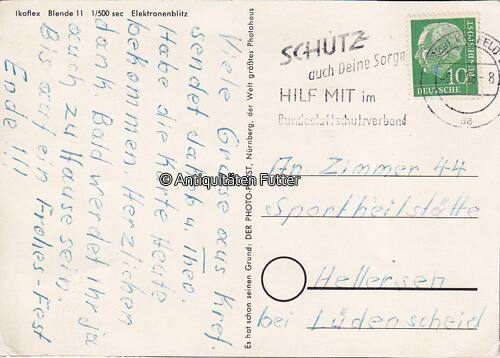 Ikoflex Blende 11 1/500 sec Elektronenblitz
Viele Grüsse aus Kref.
sendet Jakob u. Theo.
Habe die Karte Heute
bekommen Herzlichen
dank Bald werdet Ihr ja
auch zu Hause sein.
Bis auf ein Frohes-Fest
Ende !!!
Es hat schon seinen Grund: DER PHOTO-PORST, Nürnberg, der Welt größtes Photohaus
SCHÜTZ
auch Deine Sorge
HILF MIT im
Bundesluftschutzverband
KREFELD
8
aa
10
DEUTSCHE
BUNDESPOST
An Zimmer 44
Sportheilstätte
Hellersen
bei Lüdenscheid
© Antiquitäten Futter